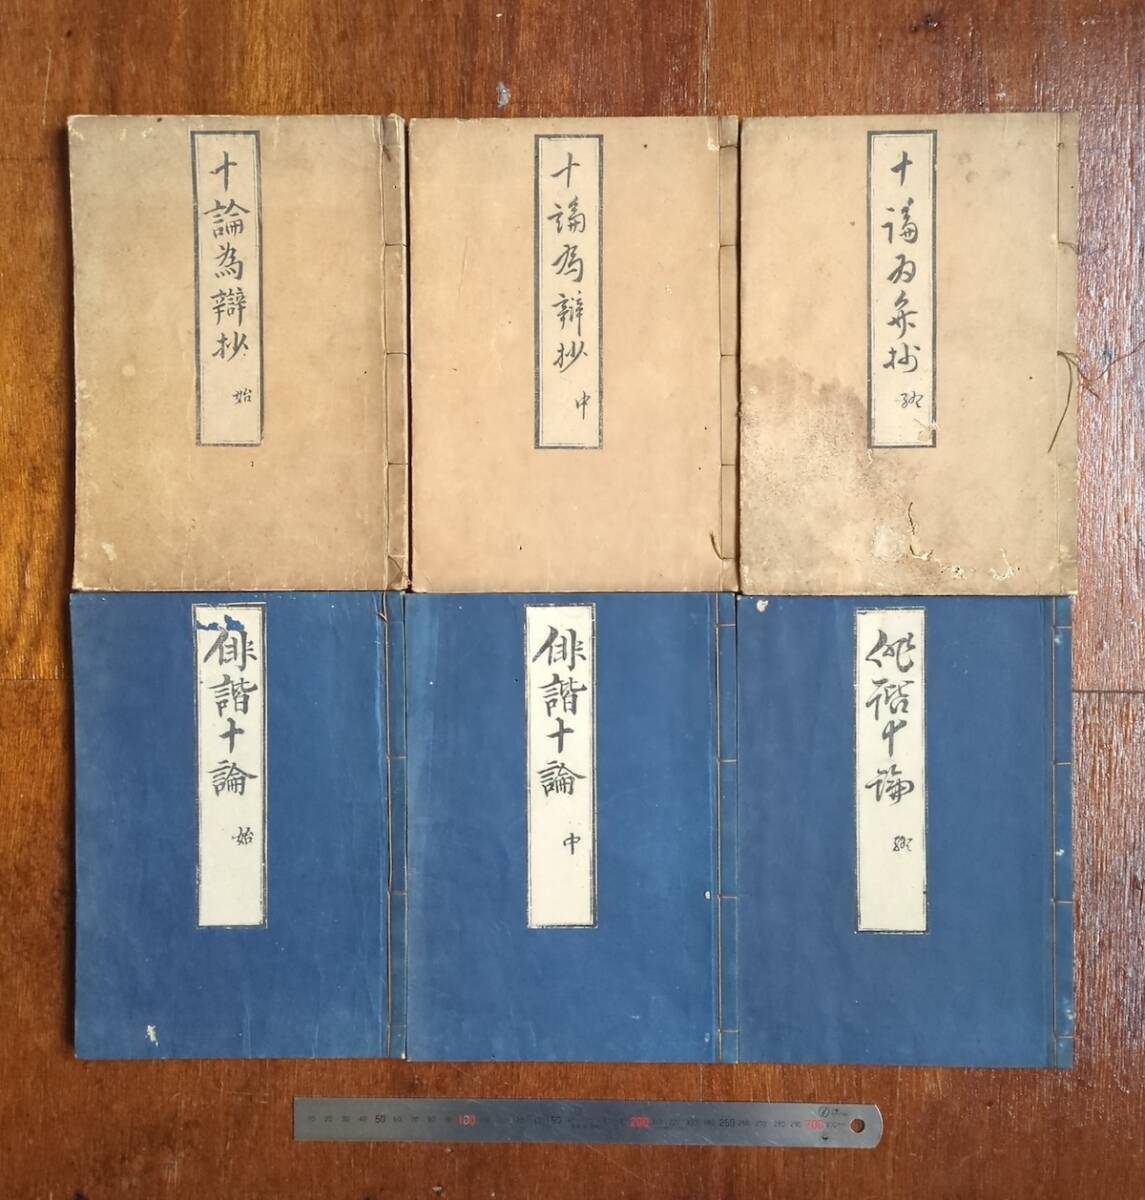 十論為辯抄 始
十論為辯抄 中
十論為弁抄 終
俳諧十論 始
俳諧十論 中
俳諧十論 終
50 100 50 200 250 300